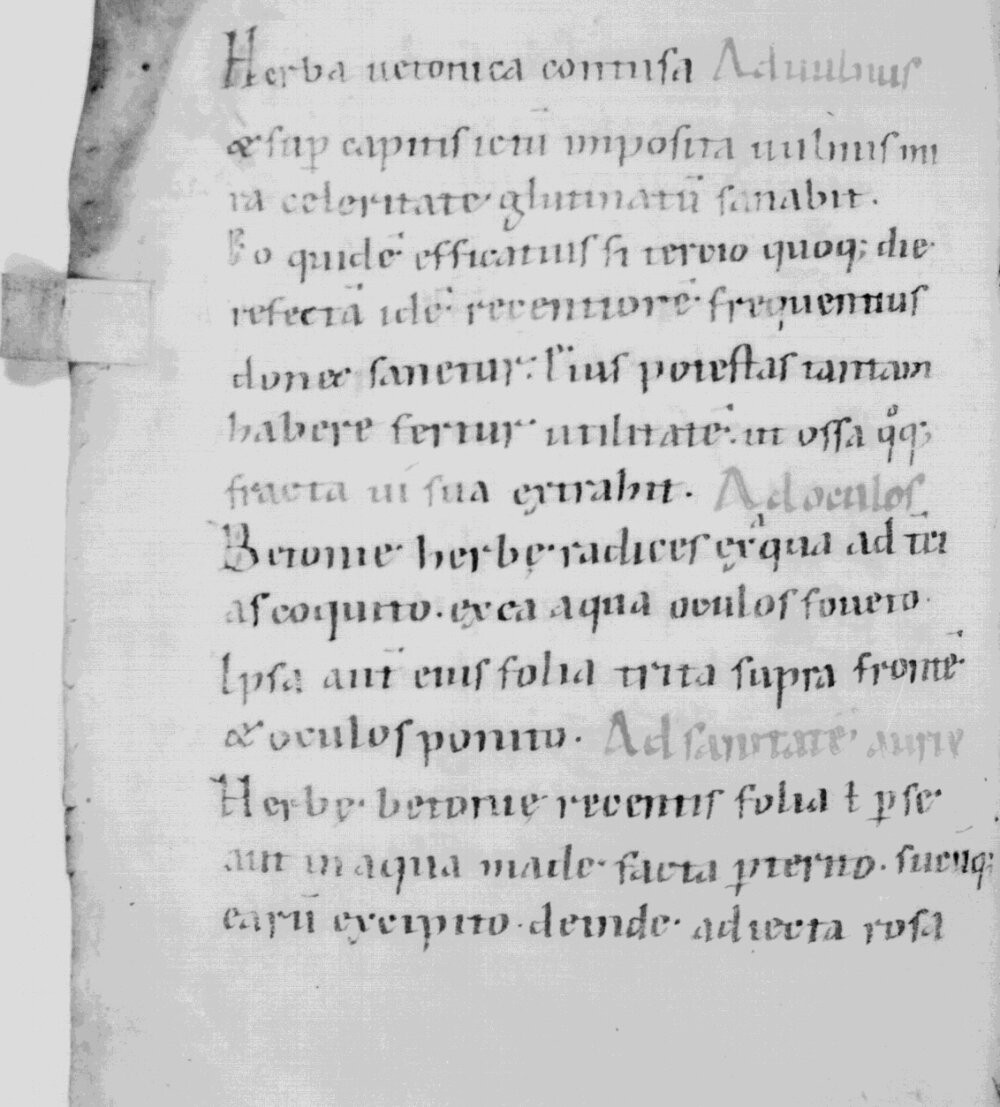 Herba uetonica contusa Aduulnus
&sup̄ capitis ictū imposita uulnus mi
ra celeritate· glutinatū sanabit.
Eo quidē efficatius si tercio quoq; die·
refectā idē· recentiorē· frequentius
don& sanetur. Eius potestas tantam
habere fertur· utilitatē· ut ossa qͦq;
fracta ui sua extrahit. Ad oculos
Betonie· herbę· radices ex aqua ad t̄ti
as coquito. ex ea aqua oculos foueto.
Ipsa aut̄ eius folia trita supra frontē·
& oculos ponito. Ad sanitatē· aurie
Herbę· betonię recentis folia ł p̱ se·
aut in aqua made·facta p̱terito. sucūq;
earū excipito. deinde· adiecta rosa